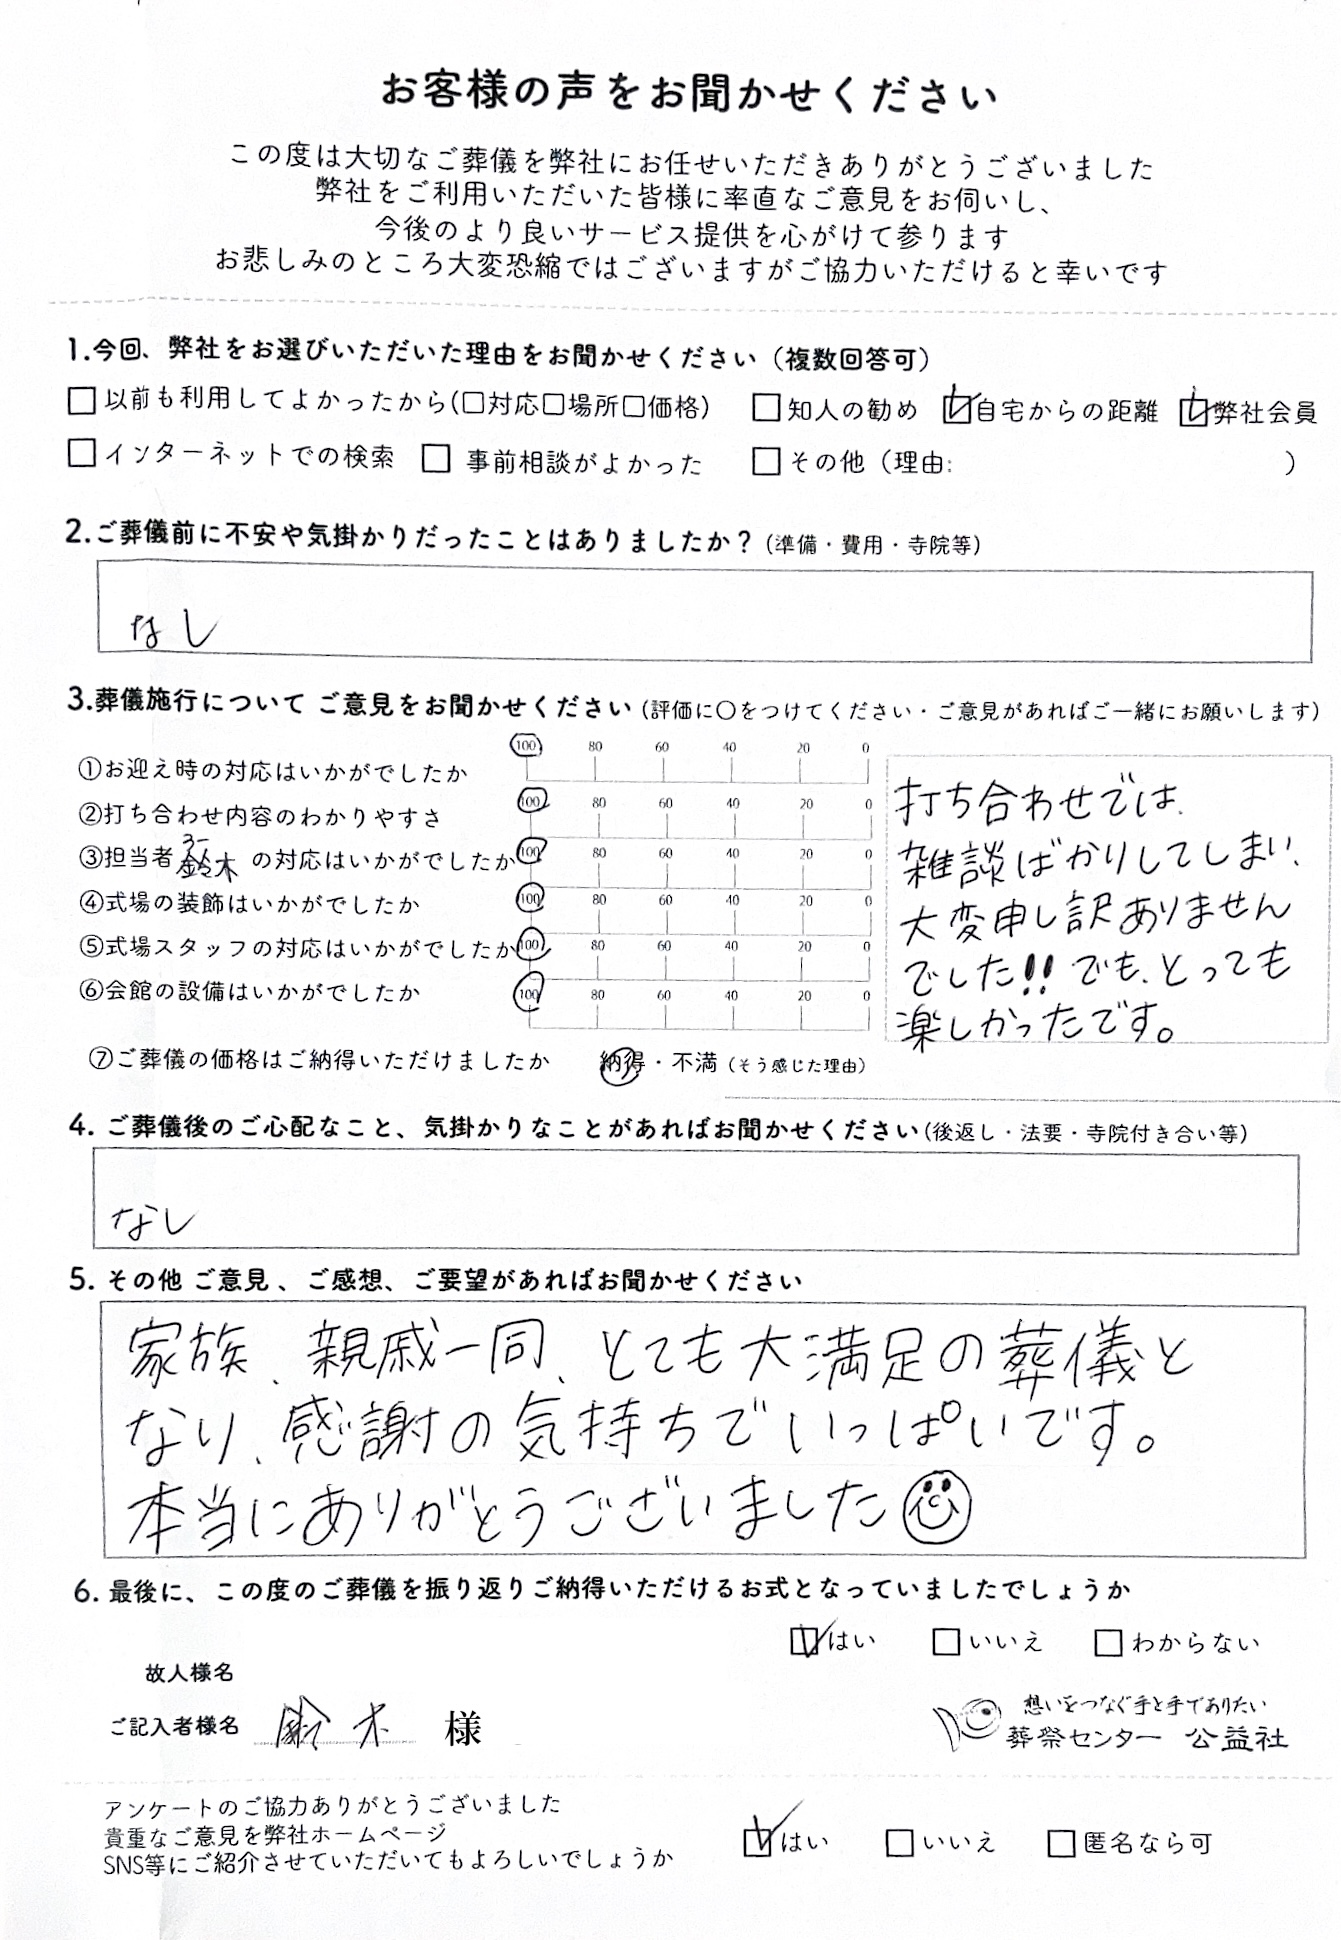 お客様の声をお聞かせください
この度は大切なご葬儀を弊社にお任せいただきありがとうございました
弊社をご利用いただいた皆様に率直なご意見をお伺いし、
今後のより良いサービス提供を心がけて参ります
お悲しみのところ大変恐縮ではございますがご協力いただけると幸いです
1.今回、弊社をお選びいただいた理由をお聞かせください（複数回答可）
□以前も利用してよかったから(□対応□場所□価格) □知人の勧め ☑自宅からの距離 ☑弊社会員
□インターネットでの検索 □事前相談がよかった □その他（理由: ）
2.ご葬儀前に不安や気掛かりだったことはありましたか？(準備・費用・寺院等)
なし
3.葬儀施行について ご意見をお聞かせください(評価に○をつけてください・ご意見があればご一緒にお願いします)
100 80 60 40 20 0
①お迎え時の対応はいかがでしたか
100 80 60 40 20 0
②打ち合わせ内容のわかりやすさ
100 80 60 40 20 0
③担当者 鈴木 の対応はいかがでしたか
100 80 60 40 20 0
④式場の装飾はいかがでしたか
100 80 60 40 20 0
⑤式場スタッフの対応はいかがでしたか
100 80 60 40 20 0
⑥会館の設備はいかがでしたか
打ち合わせでは、
雑談ばかりしてしまい、
大変申し訳ありません
でした!! でも、とっても
楽しかったです。
⑦ご葬儀の価格はご納得いただけましたか 納得・不満（そう感じた理由）
4. ご葬儀後のご心配なこと、気掛かりなことがあればお聞かせください(後返し・法要・寺院付き合い等)
なし
5. その他 ご意見、ご感想、ご要望があればお聞かせください
家族、親戚一同、とても大満足の葬儀と
なり、感謝の気持ちでいっぱいです。
本当にありがとうございました
6. 最後に、この度のご葬儀を振り返りご納得いただけるお式となっていましたでしょうか
☑はい □いいえ □わからない
故人様名
ご記入者様名 鈴木 様
想いをつなぐ手と手でありたい
葬祭センター 公益社
アンケートのご協力ありがとうございました
貴重なご意見を弊社ホームページ
SNS等にご紹介させていただいてもよろしいでしょうか
☑はい □いいえ □匿名なら可